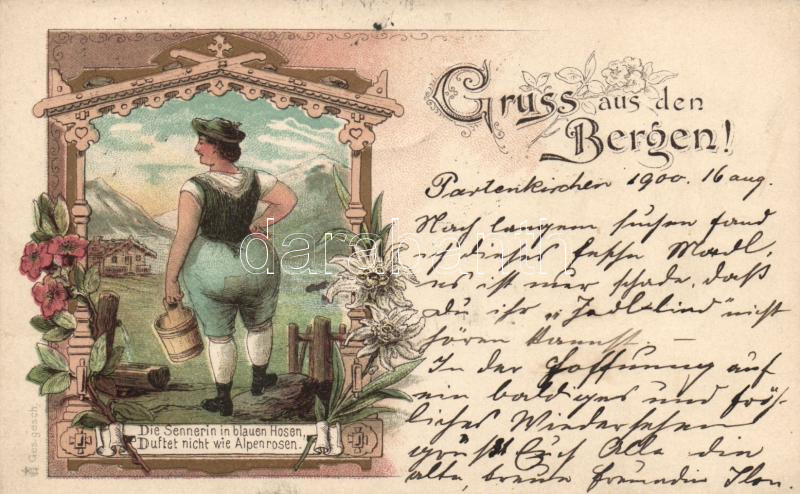 Gruss aus den
Bergen!
Partenkirchen 1900. 16 aug.
Nach langem suchen fand
ich dieses fesche Madl,
es ist nur schade, daß
du ihr „Jodl-lied" nicht
hören kannst. —
In der Hoffnung auf
ein baldiges und fröh-
liches Wiedersehen
grüßt Euch Alle die
alte, treue Freundin Ilon.
Die Sennerin in blauen Hosen,
Duftet nicht wie Alpenrosen.
Ges. gesch.
darabanth